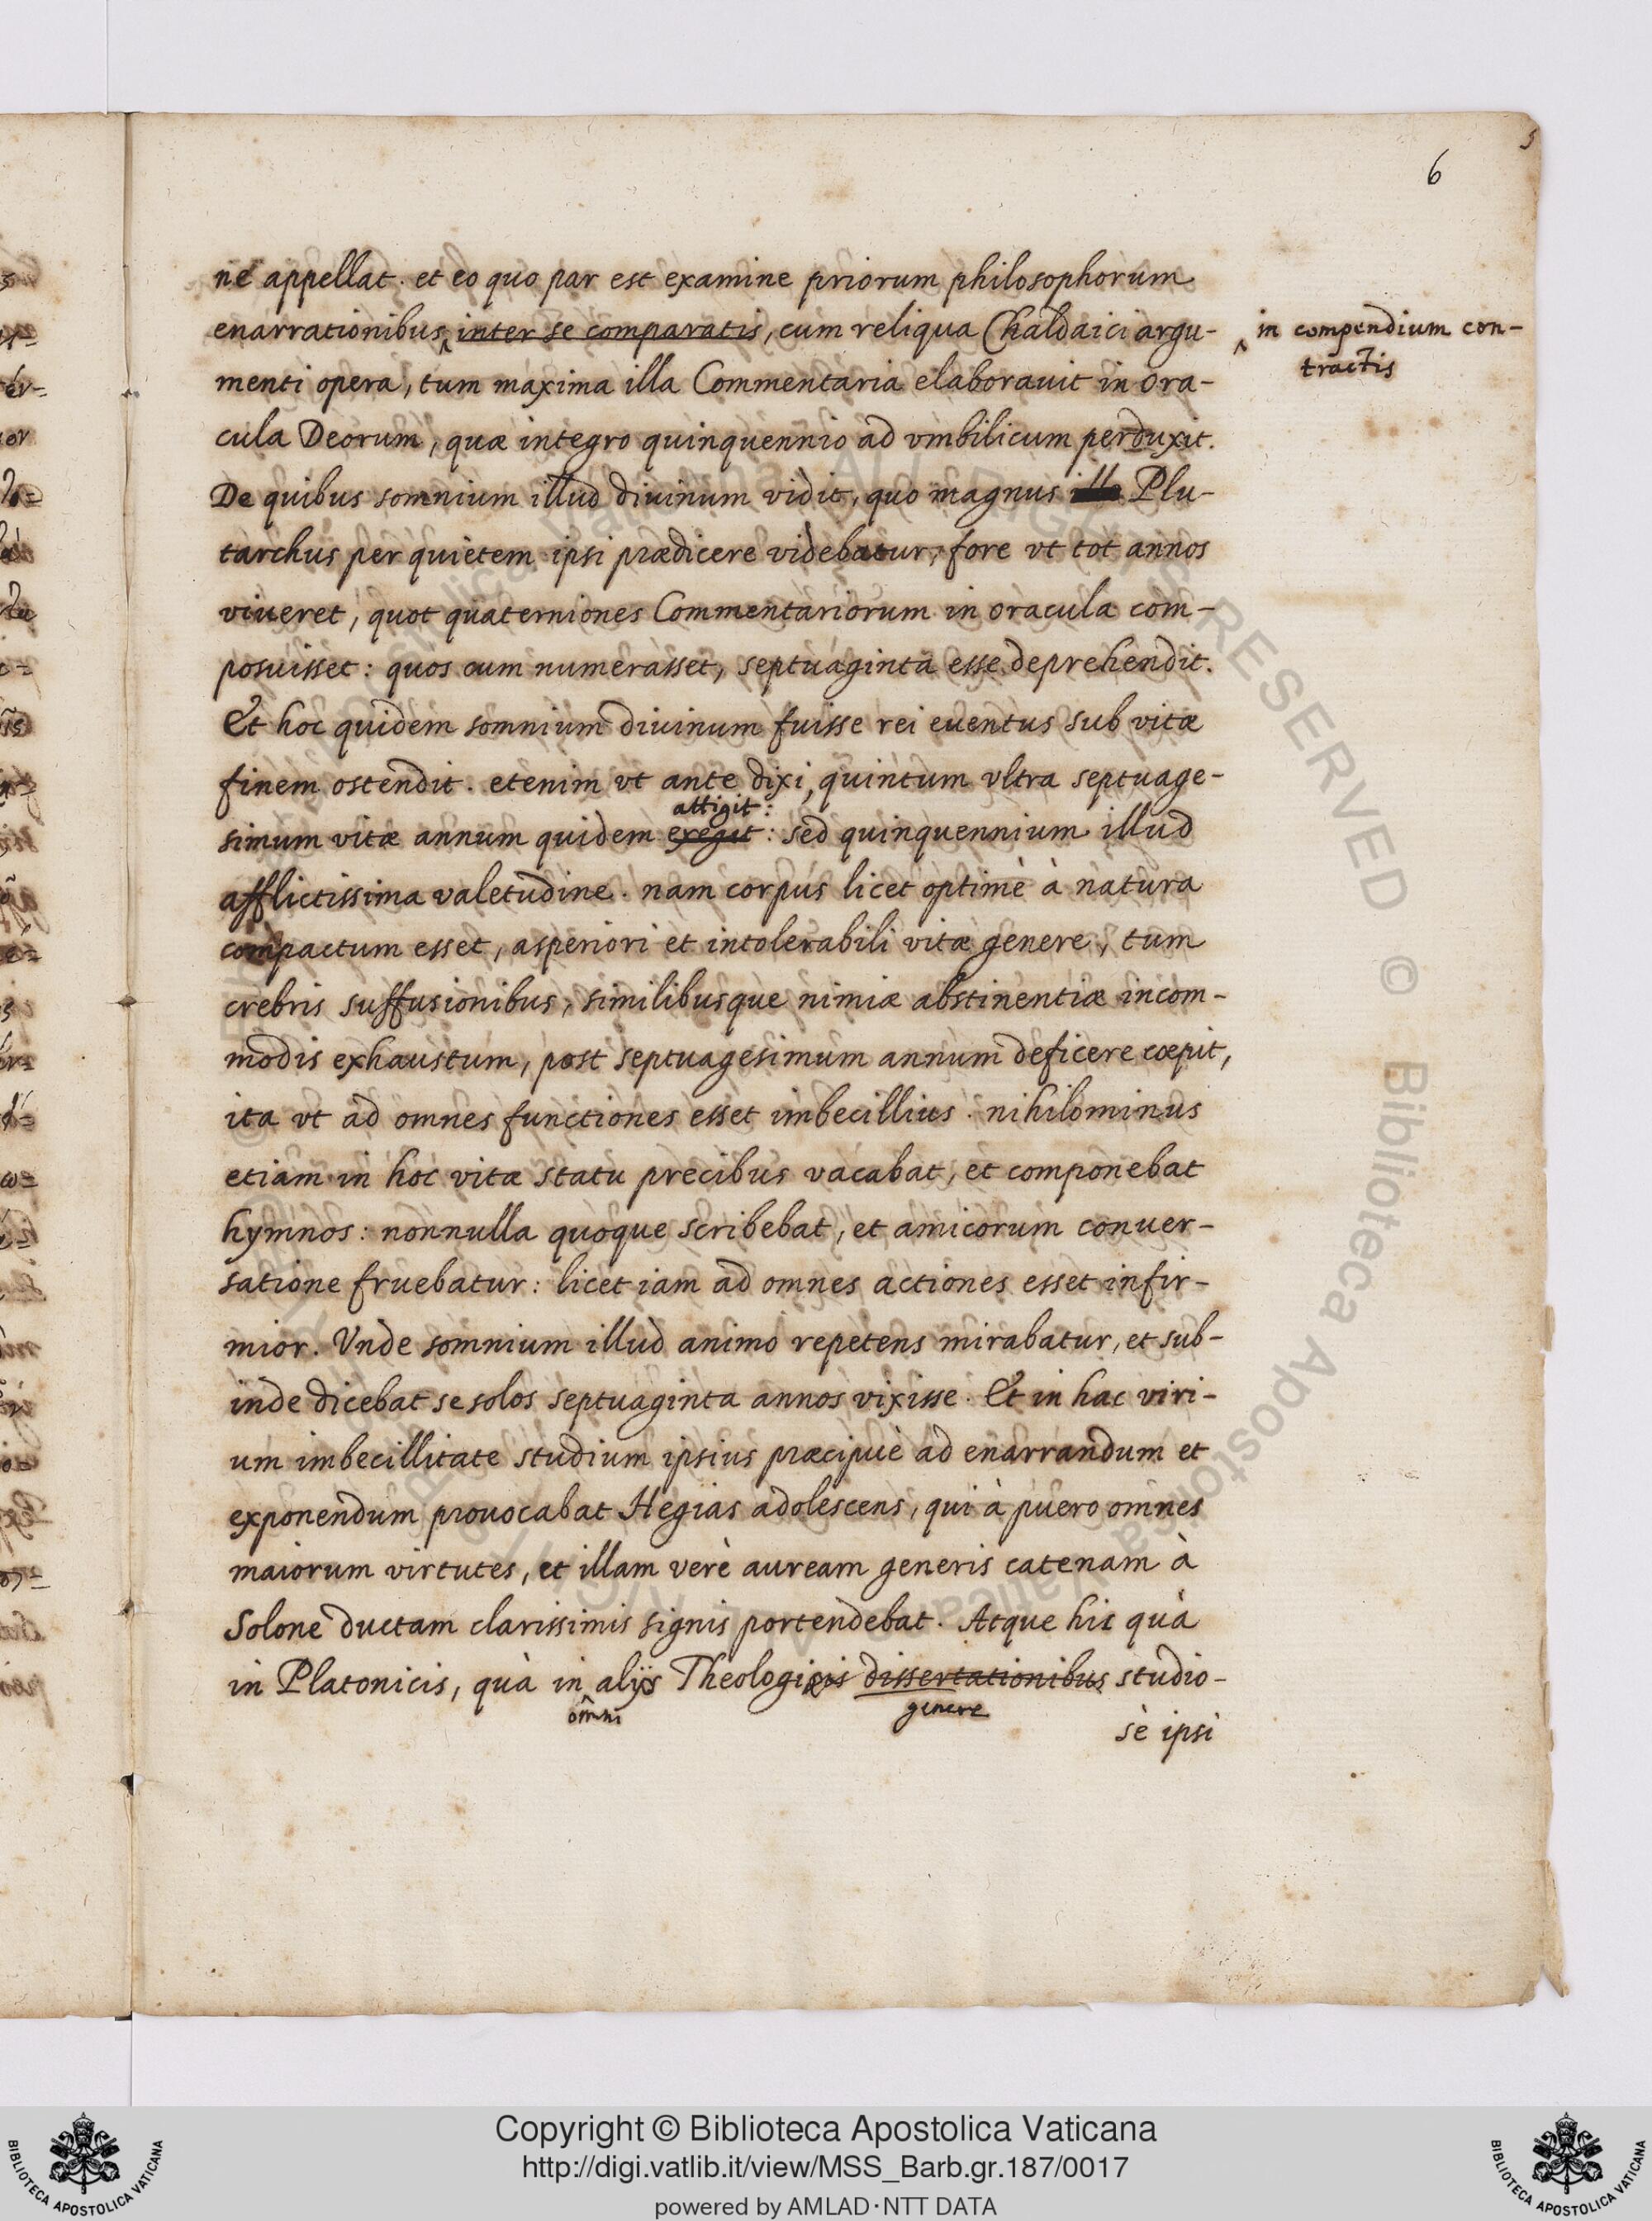 5
6
ne appellat. et eo quo par est examine priorum philosophorum
enarrationibus, inter se comparatis, cum reliqua Chaldaici argu-
^ in compendium con-
tractis
menti opera, tum maxima illa Commentaria elaborauit in Ora-
cula Deorum, quæ integro quinquennio ad vmbilicum perduxit.
De quibus somnium illud diuinum vidit, quo magnus ille Plu-
tarchus per quietem ipsi prædicere videbatur, fore vt tot annos
viueret, quot quaterniones Commentariorum in oracula com-
posuisset: quos cum numerasset, septuaginta esse deprehendit.
Et hoc quidem somnium diuinum fuisse rei euentus sub vitæ
finem ostendit. etenim vt ante dixi, quintum vltra septuage-
attigit:
simum vitæ annum quidem exegit: sed quinquennium illud
afflictissima valetudine. nam corpus licet optimè à natura
compactum esset, asperiori et intolerabili vitæ genere, tum
crebris suffusionibus, similibusque nimiæ abstinentiæ incom-
modis exhaustum, post septuagesimum annum deficere cœpit,
ita vt ad omnes functiones esset imbecillius. nihilominus
etiam in hoc vitæ statu precibus vacabat, et componebat
hymnos: nonnulla quoque scribebat, et amicorum conuer-
satione fruebatur: licet iam ad omnes actiones esset infir-
mior. Vnde somnium illud animo repetens mirabatur, et sub-
inde dicebat se solos septuaginta annos vixisse. Et in hac viri-
um imbecillitate studium ipsius præcipuè ad enarrandum et
exponendum prouocabat Hegias adolescens, qui à puero omnes
maiorum virtutes, et illam verè auream generis catenam à
Solone ductam clarissimis signis portendebat. Atque hic quà
in Platonicis, quà in alijs Theologicis dissertationibus studio-
omni genere
sè ipsi
RESERVED © Biblioteca Apostolica Vaticana
Copyright © Biblioteca Apostolica Vaticana
http://digi.vatlib.it/view/MSS_Barb.gr.187/0017
powered by AMLAD·NTT DATA
BIBLIOTECA APOSTOLICA VATICANA
BIBLIOTECA APOSTOLICA VATICANA